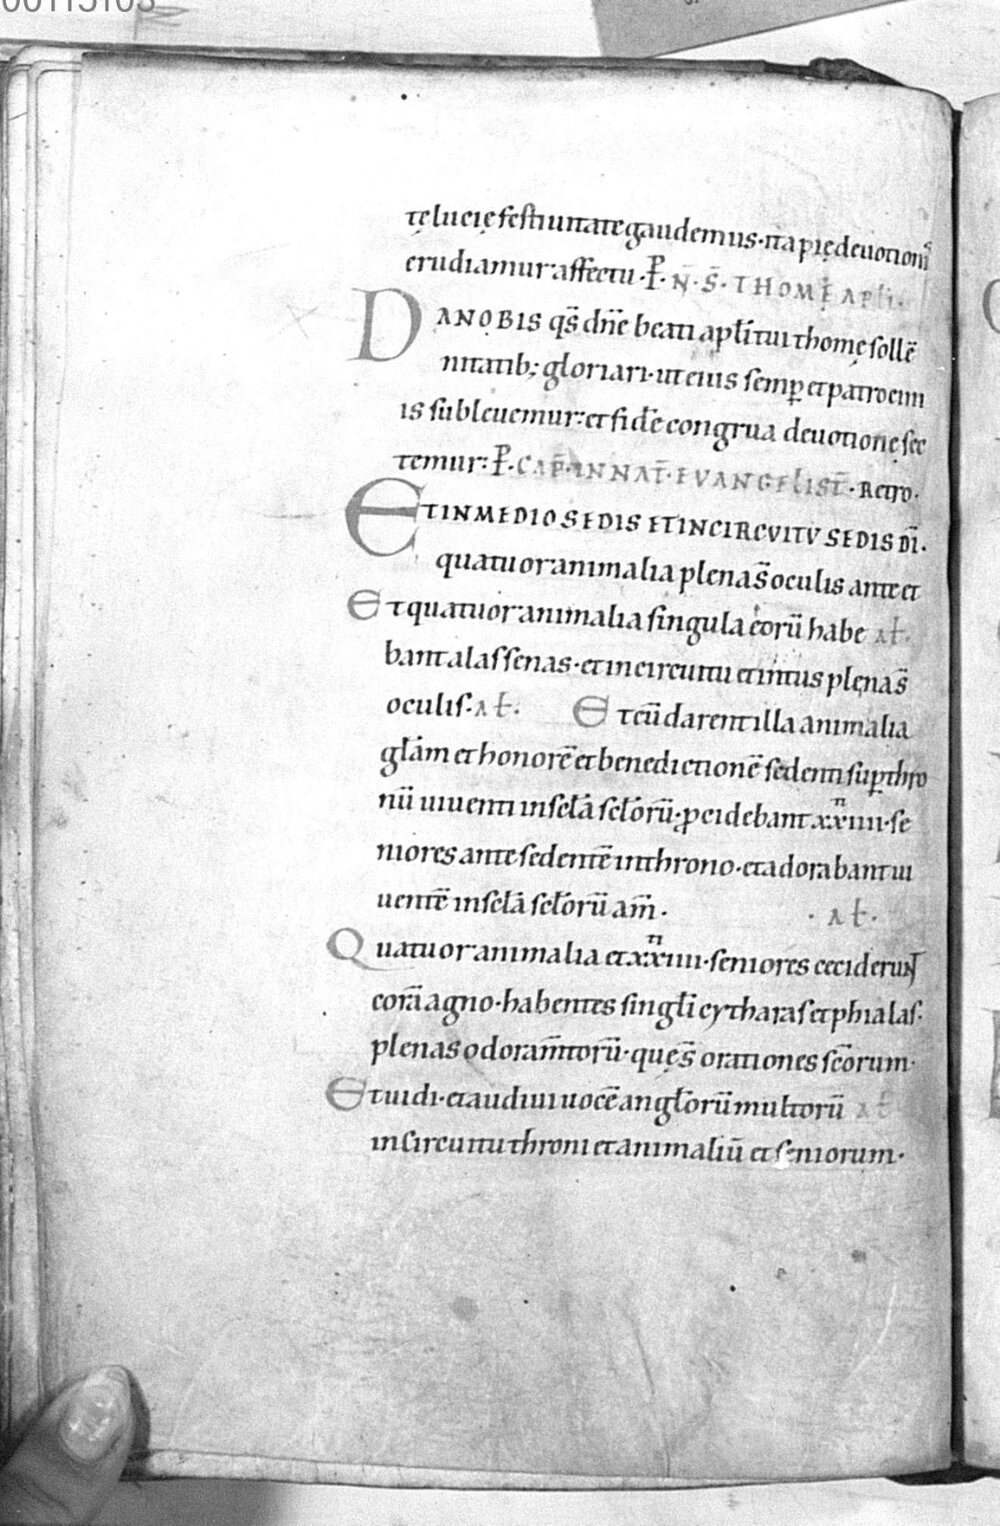 00115103
tę lucię festiuitate gaudemus· ita pię deuotionis
erudiamur affectu· P̄· N̄· S̄· THOMĘ AP̄łi·
DA NOBIS q̄s dn̄e beati apłi tui thomę sollē
nitatib; gloriari· ut eius semp̱ et patrocinii
is subleuemur: et fidē congrua deuotionę sec
temur: P̄· CAP̄· IN NAT̄· EVANGELIST̄· Retro·
ET IN MEDIO SEDIS ET IN CIRCVITV SEDIS DĪ·
quatuor animalia plena s̄ oculis ante et
Et quatuor animalia singula eorū habe Ał·
bant alas senas· et in circuitu et intus plena s̄
oculis· Ał· Et cū darent illa animalia
głam et honorē et benedictionē sedenti sup̱ thro
nū uiuenti in scła scłorū· p̱cidebant xxiiii· se
niores ante sedentē in throno· et adorabant ui
uentē in scła scłorū am̄· · Ał·
Quatuor animalia et xxiiii· seniores ceciderunt
corā agno· habentes singłi cytharas et phialas·
plenas odoram̄torū· quę s̄ orationes sc̄orum·
Et uidi· et audiui uocē angłorū multorū Ał
in circuitu throni et animaliū et seniorum·